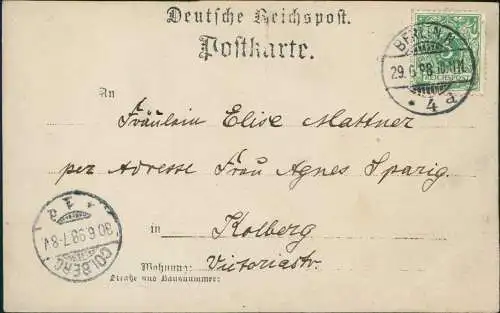 Deutsche Reichspost.
Postkarte.
BERLIN, N.
29.6.98.
* 4 a
REICHSPOST
An
Fräulein Elise Mattner
per Adresse Frau Agnes Sparig.
in Kolberg
Wohnung: Victoriastr.
Straße und Hausnummer:
* 1 a
30.6.98.7-8V.
COLBERG